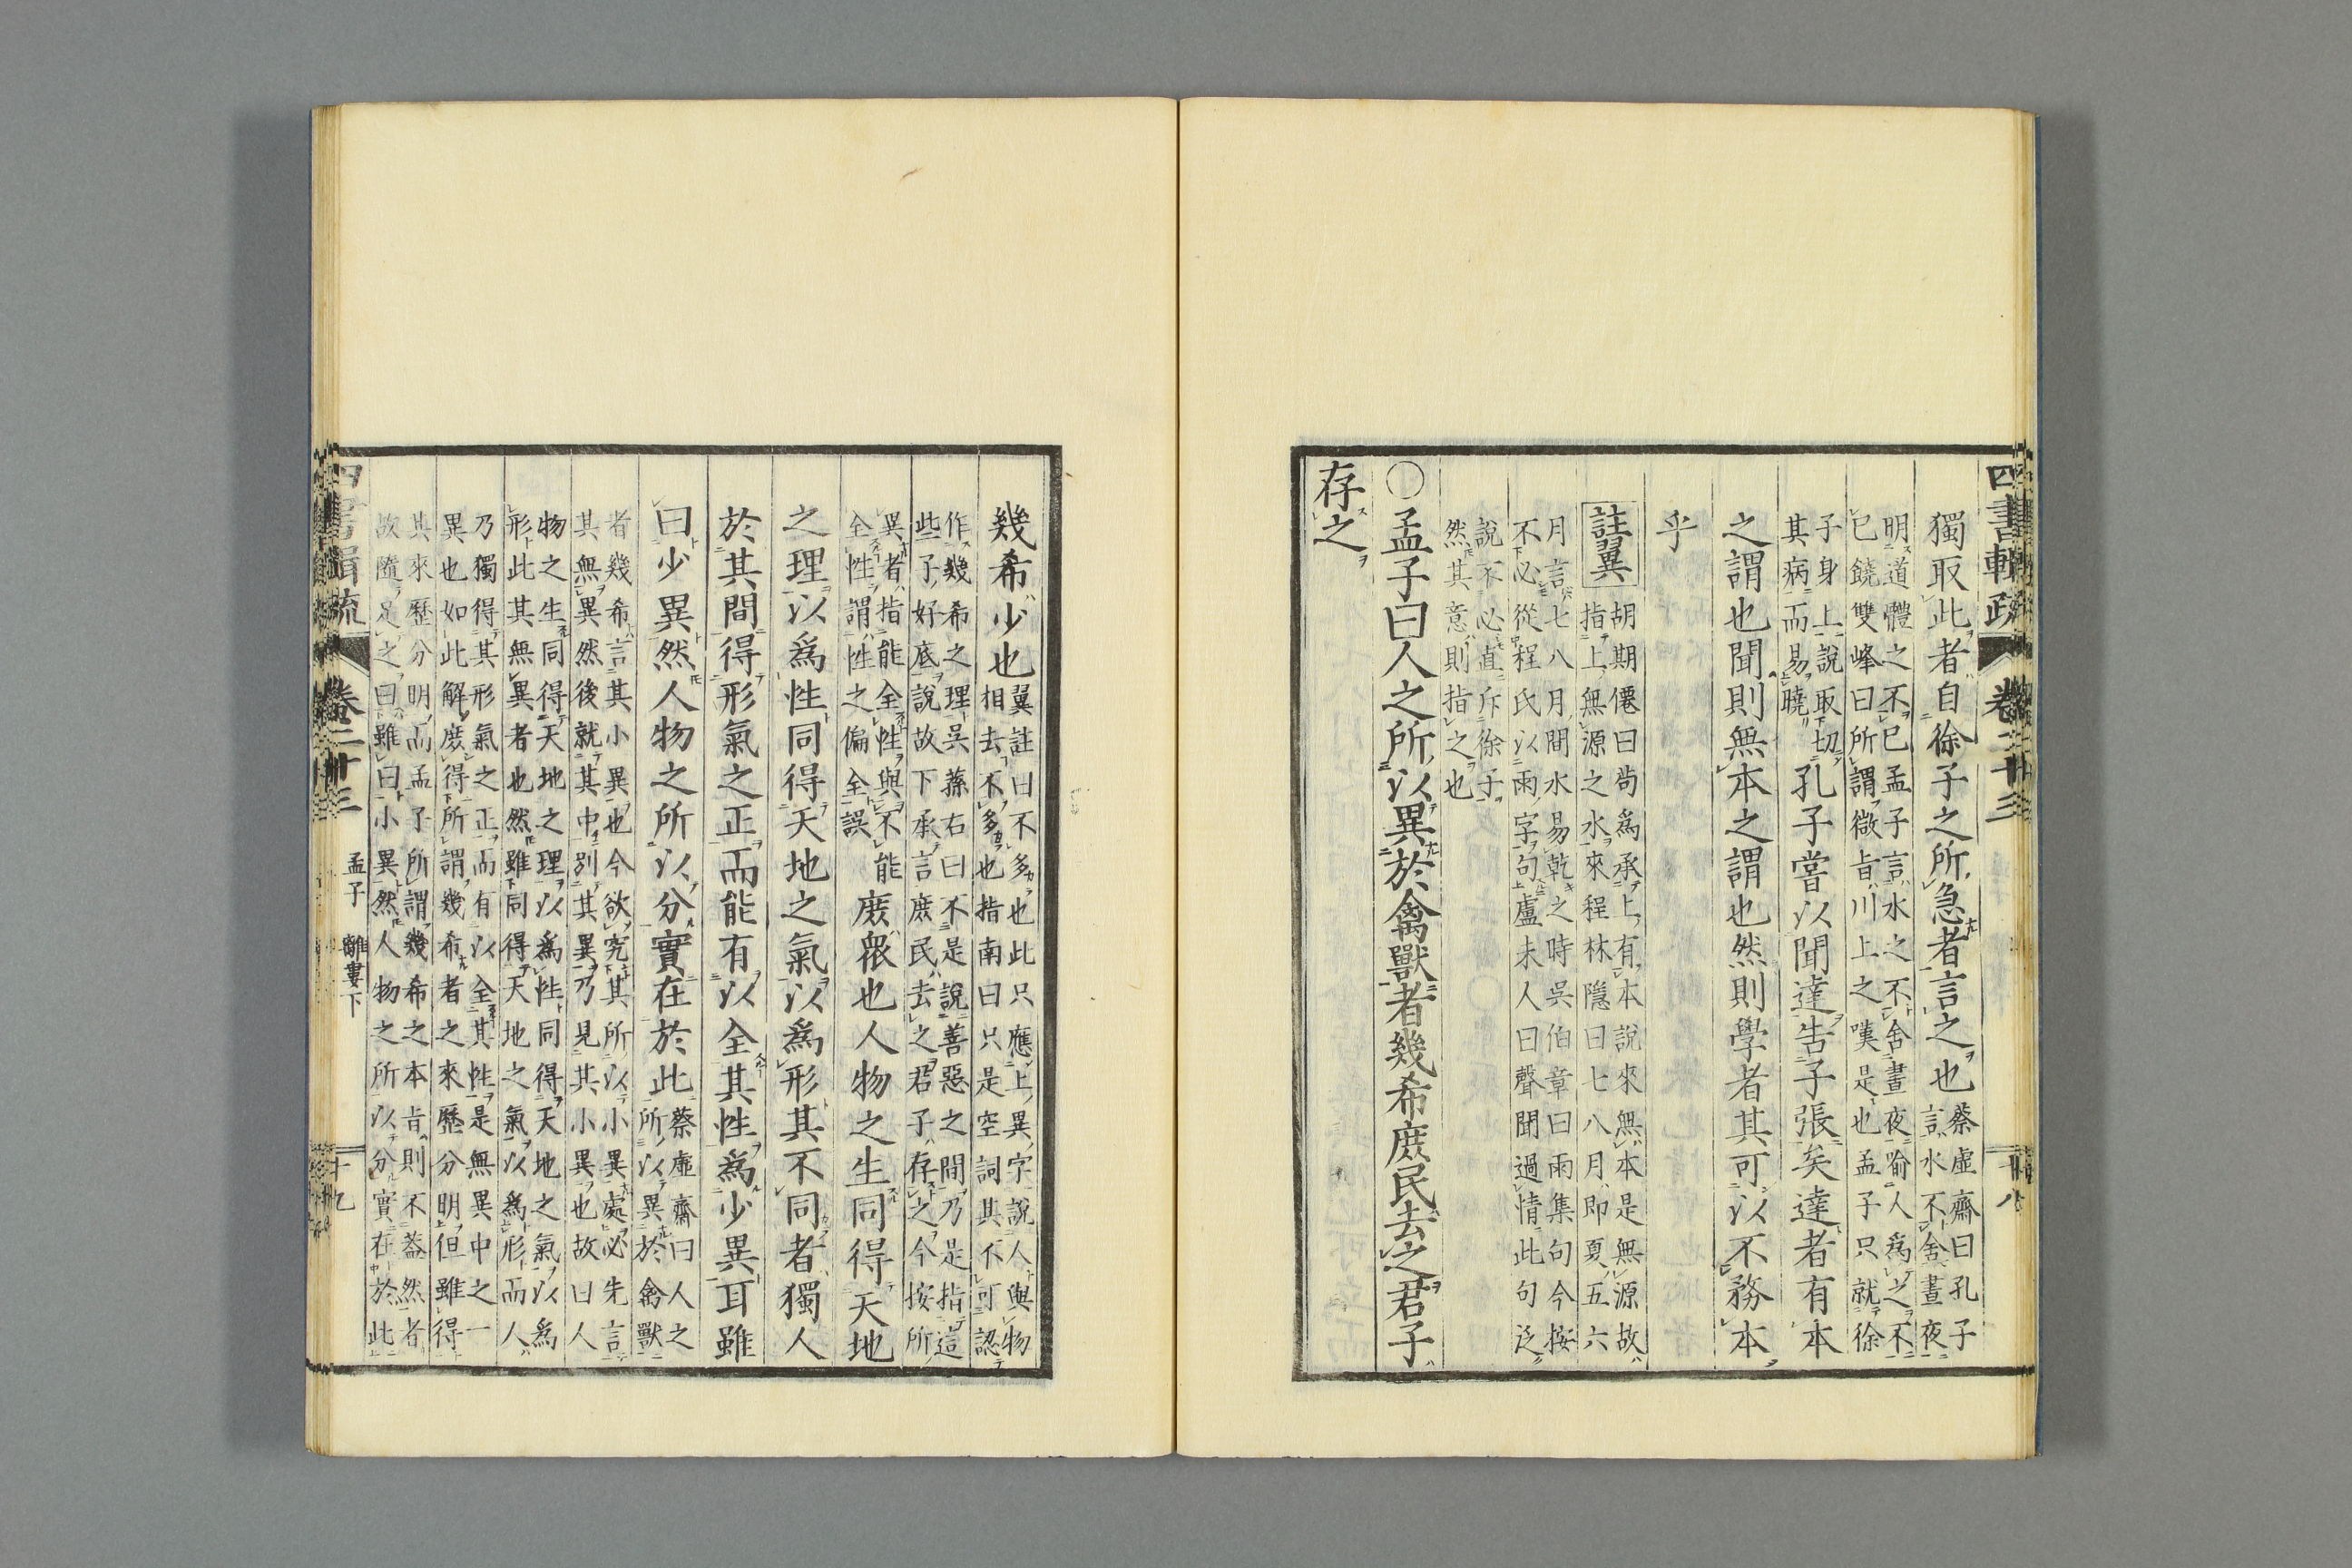 四書輯疏 卷二十三 十八
獨取此者自徐子之所急者言之也蔡虛齋曰孔子言水不舍晝夜
明道體之不已孟子言水之不舍晝夜喻人爲之不
已饒雙峰曰所謂微旨川上之嘆是也孟子只就徐
子身上說取切
其病而易曉孔子嘗以聞達告子張矣達者有本
之謂也聞則無本之謂也然則學者其可以不務本
乎
註翼 胡期僊曰尚爲承上有本說來無本是無源故
指上無源之水來程林隱曰七八月即夏五六
月言七八月間水易乾之時吳伯章曰雨集句今按
不必從程氏以雨字句盧未人曰聲聞過情此句泛
說不必直斥徐子
然其意則指之也
○孟子曰人之所以異於禽獸者幾希庶民去之君子
存之
幾希少也翼註曰不多也此只應上異字說人與物
相去不多也指南曰只是空詞其不可認
作幾希之理吳蓀右曰不是說善惡之間乃是指這
些子好底說故下承言庶民去之君子存之今按所
異者指能全性與不能
全性謂性之偏全誤庶衆也人物之生同得天地
之理以爲性同得天地之氣以爲形其不同者獨人
於其間得形氣之正而能有以全其性爲少異耳雖
曰少異然人物之所以分實在於此蔡虛齋曰人之
所以異於禽獸
者幾希言其小異也今欲究其所以小異處必先言
其無異然後就其中別其異乃見其小異也故曰人
物之生同得天地之理以爲性同得天地之氣以爲
形此其無異者也然雖同得天地之氣以爲形而人
乃獨得其形氣之正而有以全其性是無異中之一
異也如此解庶得所謂幾希者之來歷分明但雖得
其來歷分明而孟子所謂幾希之本旨則不葢然者
故隨足之曰雖曰小異然人物之所以分實在於此
四書輯疏 卷二十三 孟子 離婁下 十九